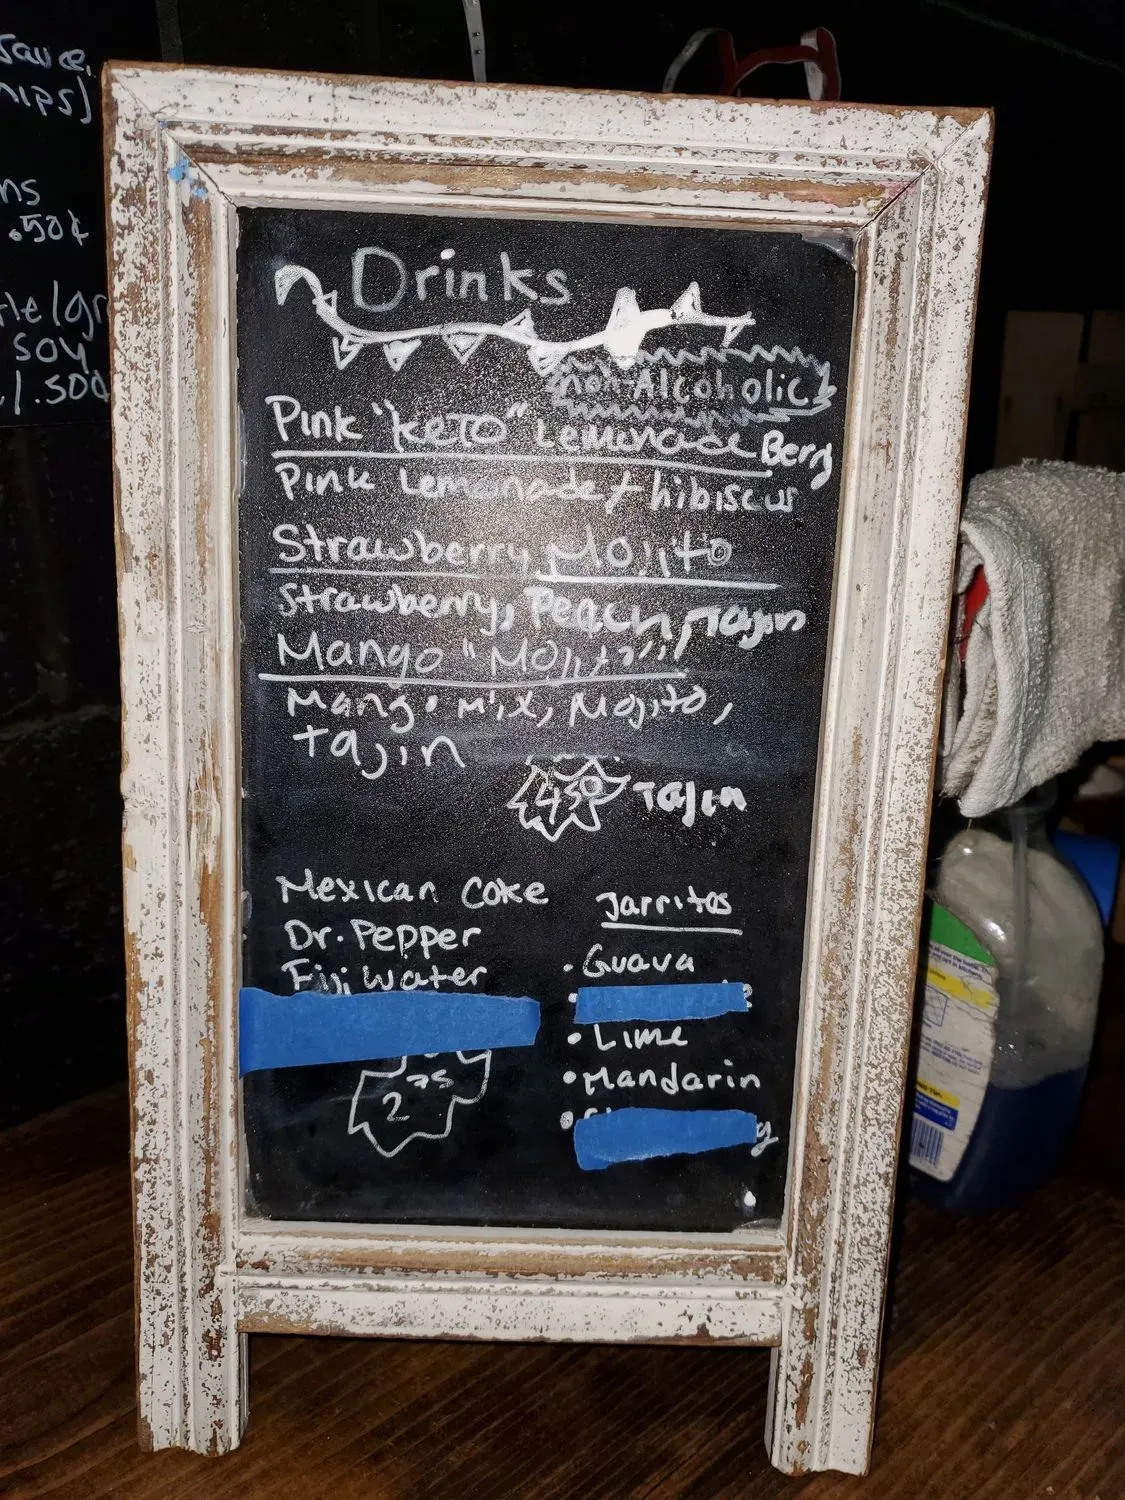 Sauce,
.50¢
soy
Drinks
non-Alcoholic
Pink "keto" Lemonade Berry
Pink Lemonade / hibiscus
Strawberry Mojito
Strawberry, Peach, Tajin
Mango "Mojito"
Mango mix, Mojito,
Tajin
450 Tajin
Mexican Coke
Dr. Pepper
Fiji Water
2 75
Jarritos
• Guava
• Lime
• Mandarin